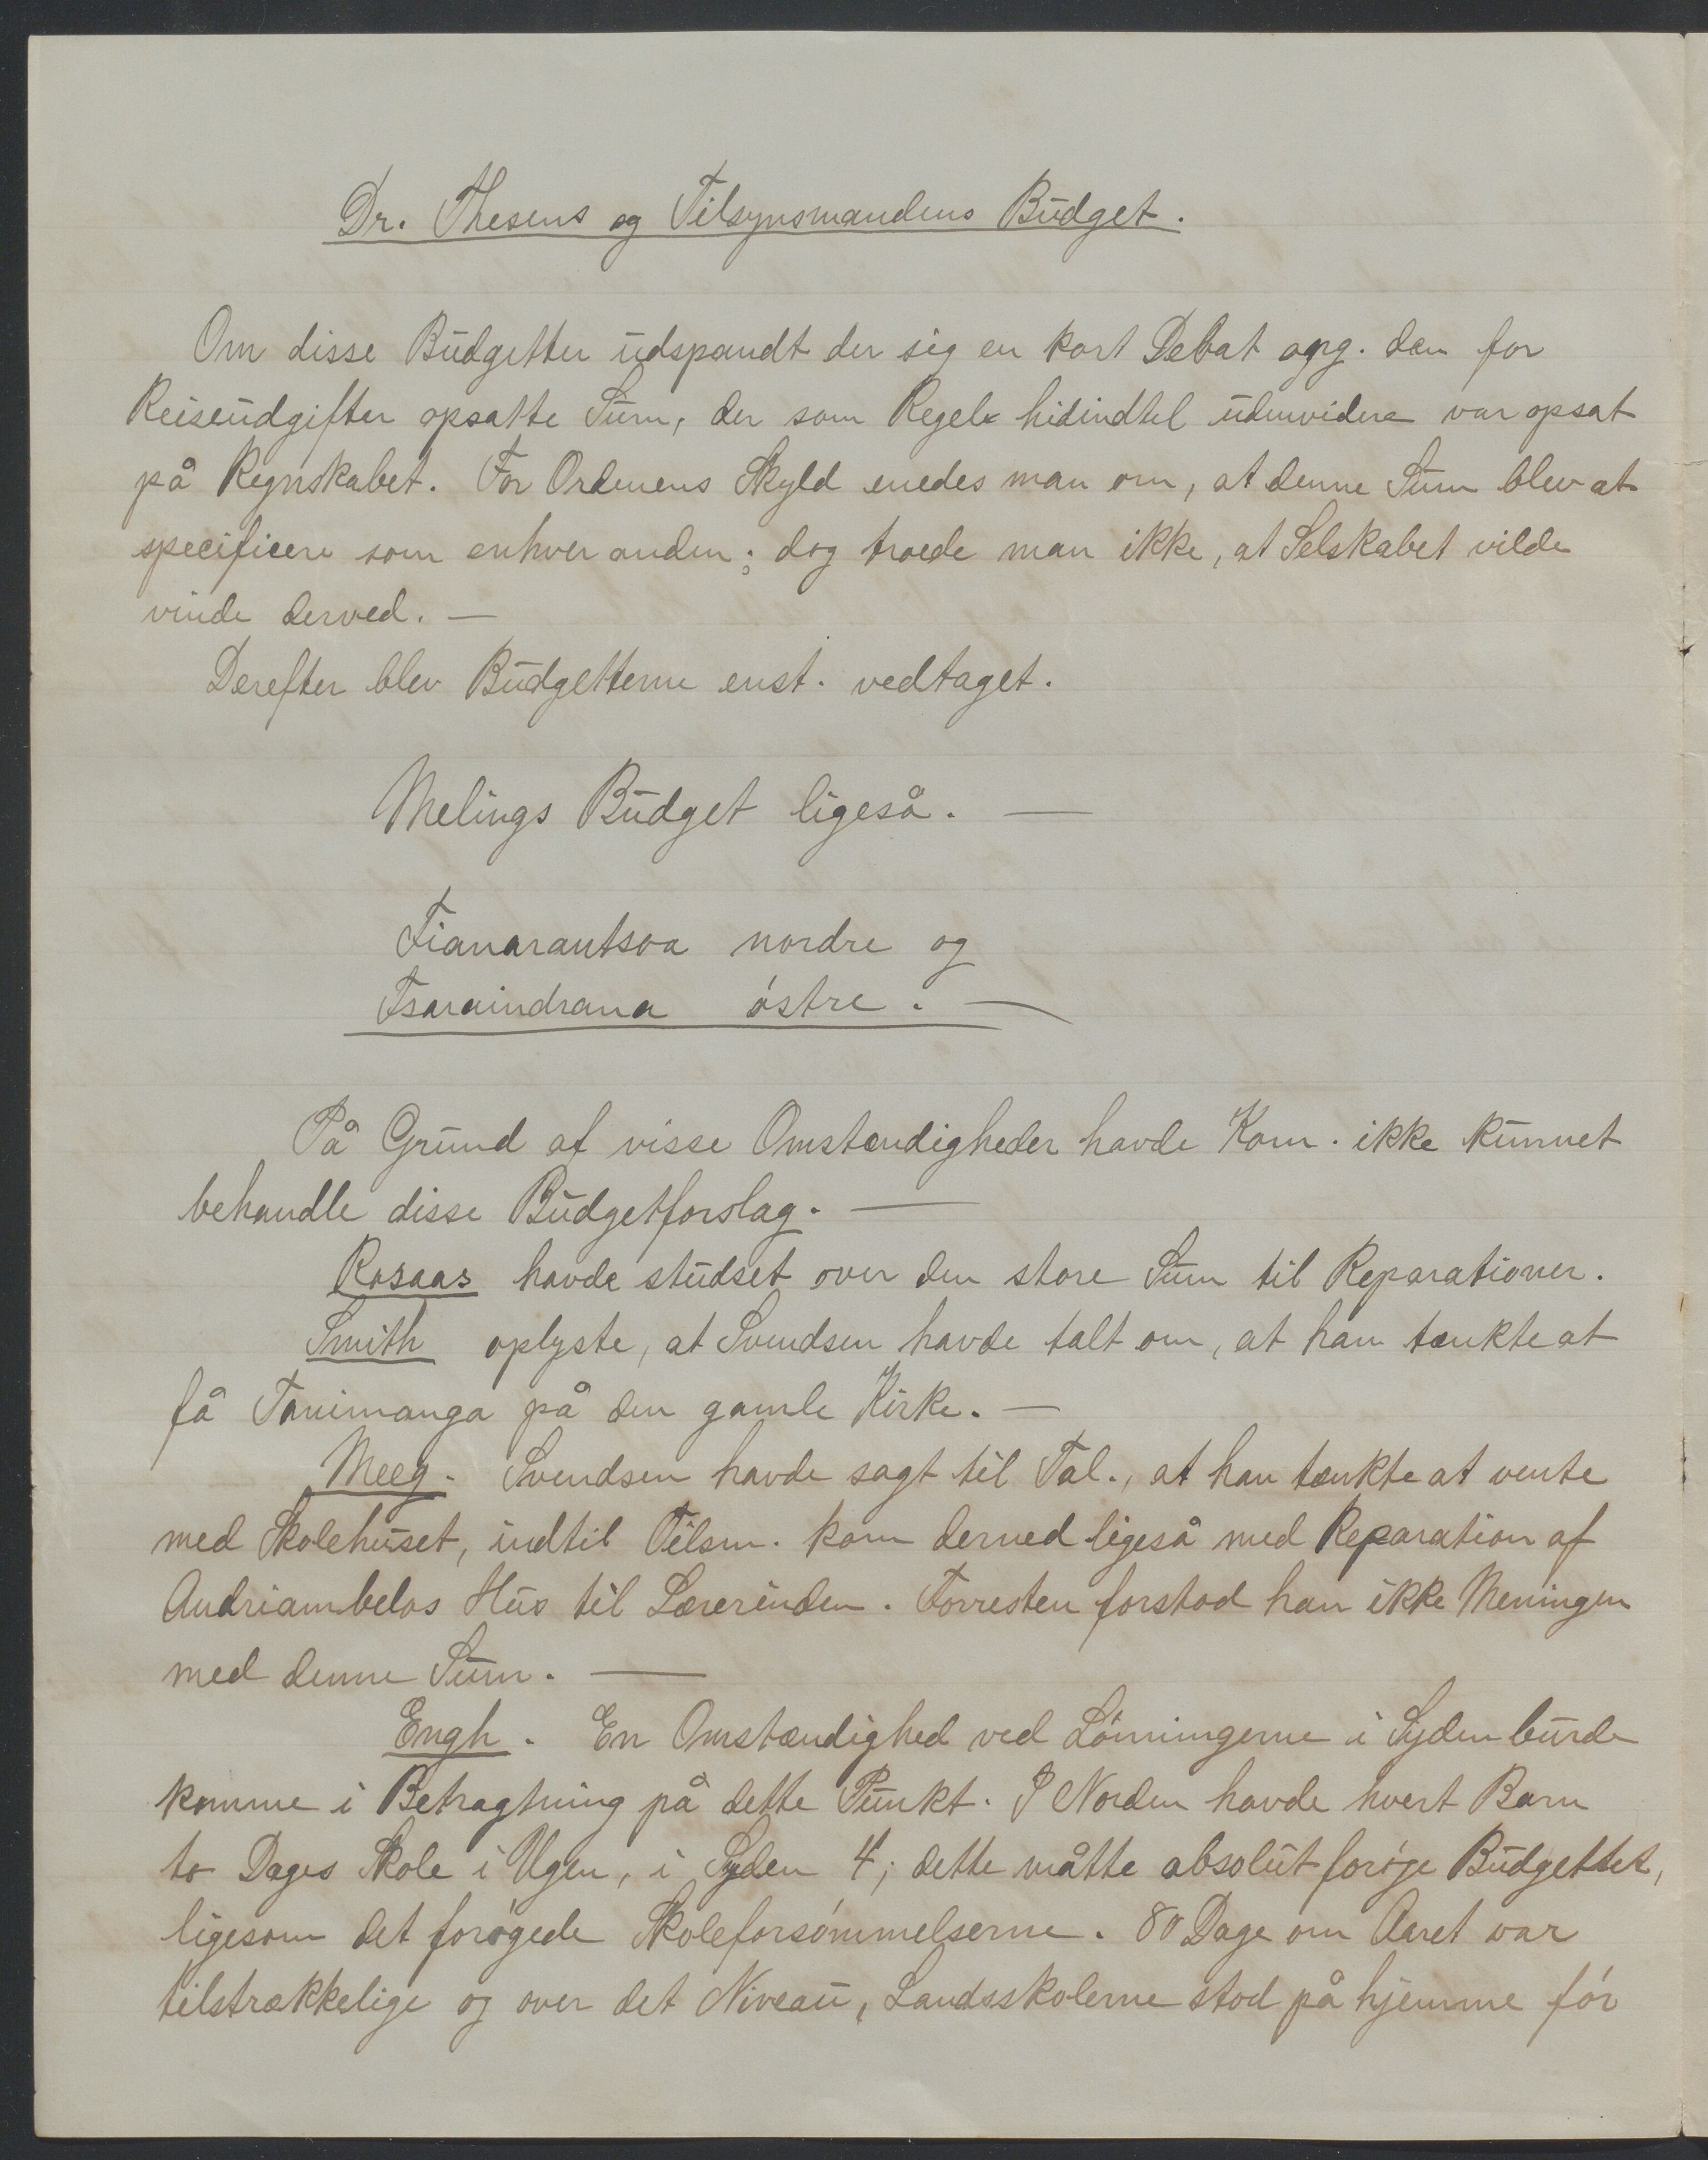 Dr. Thesens og Tilsynsmandens Budget.
Om disse Budgetter udspandt der sig en kort Debat ang. den for
Reiseudgifter opsatte Sum, der som Regel hidindtil udenvidere var opsat
på Regnskabet. For Ordenens Skyld enedes man om, at denne Sum blev at
specificere som enhver anden; dog troede man ikke, at Selskabet vilde
vinde derved. —
Derefter blev Budgetterne enst. vedtaget.
Melings Budget ligeså. —
Fianarantsoa nordre og
Tsaraindrana östre. —
På Grund af visse Omstændigheder havde Kom. ikke kunnet
behandle disse Budgetforslag. —
Rosaas havde studset over den store Sum til Reparationer.
Smith oplyste, at Svendsen havde talt om, at han tænkte at
få Tanimanga på den gamle Kirke. —
Meeg. Svendsen havde sagt til Tal., at han tænkte at vente
med Skolehuset, indtil Tilsm. kom derned ligeså med Reparation af
Andriambelos Hus til Lærerinden. Forresten forstod han ikke Meningen
med denne Sum. —
Engh. En Omstændighed ved Lönningerne i Syden burde
komme i Betragtning på dette Punkt. I Norden havde hvert Barn
to Dages Skole i Ugen, i Syden 4; dette måtte absolut foröge Budgettet,
ligesom det forögede Skoleforsömmelserne. 80 Dage om Aaret var
tilstrækkelige og over det Niveau, Landsskolerne stod på hjemme för